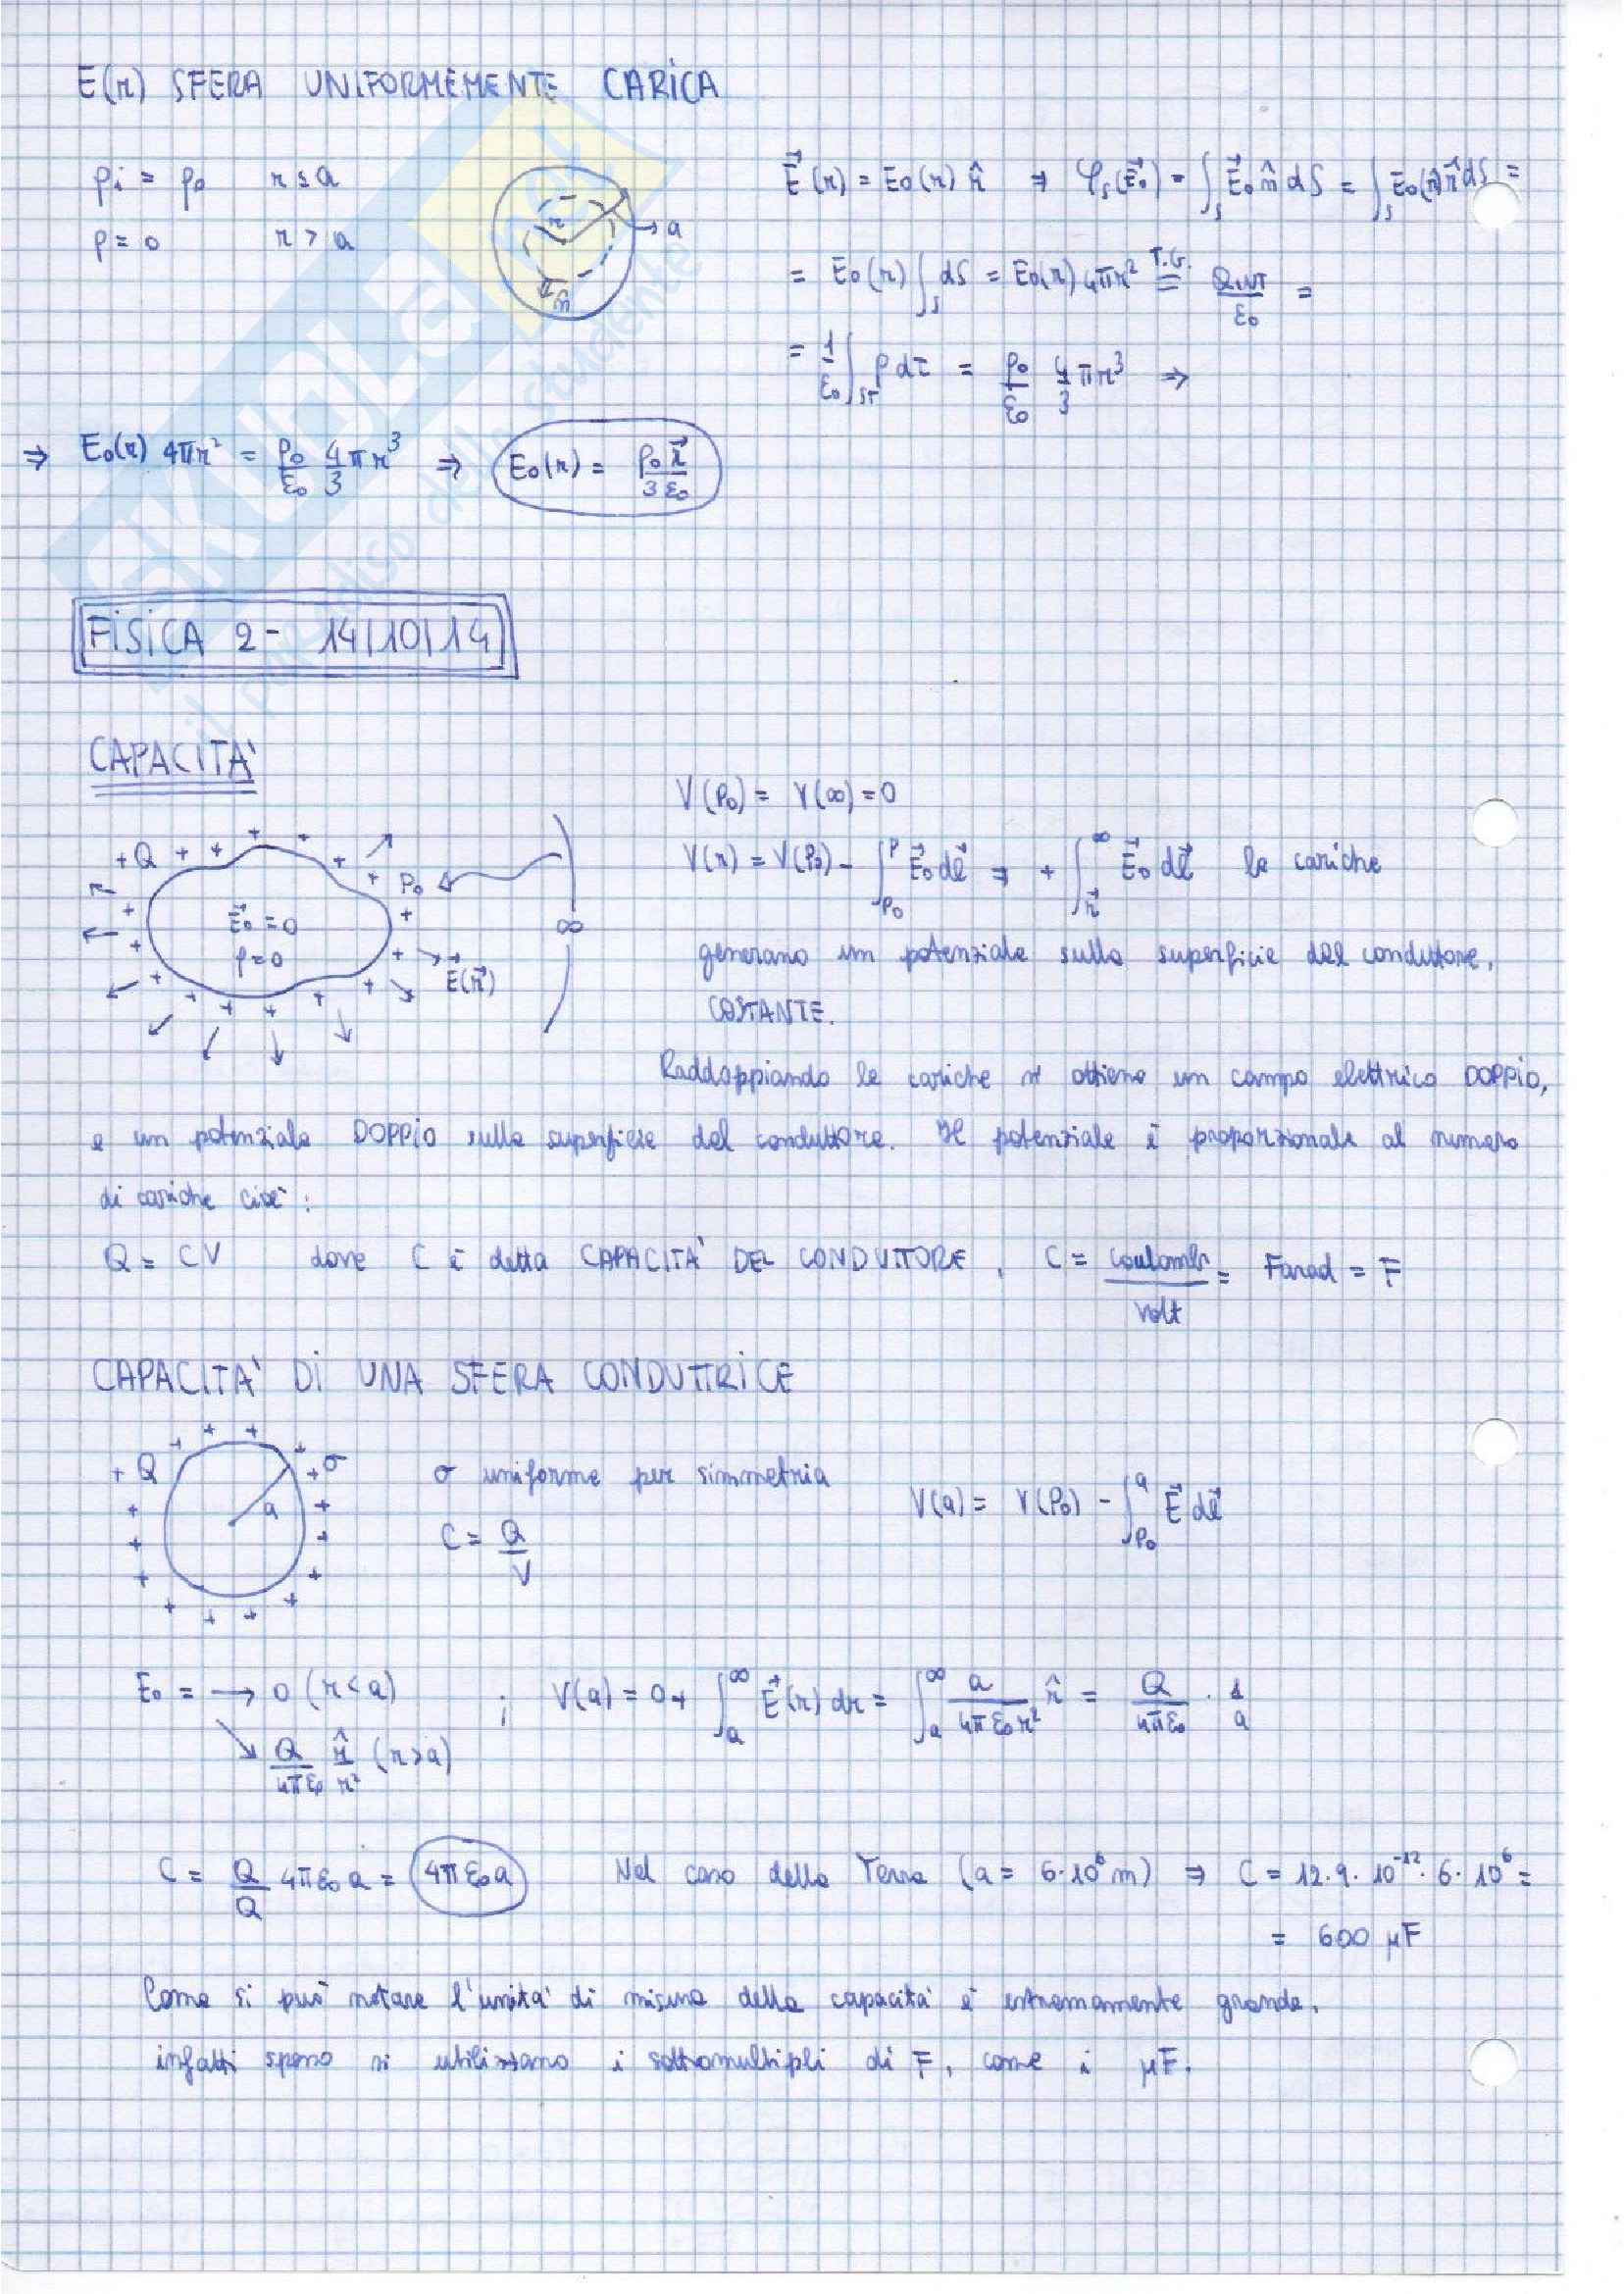 E(r) SFERA UNIFORMEMENTE CARICA
ρi = ρ0 r ≤ a
ρ = 0 r > a
r a n̂
E⃗(r) = E0(r) r̂ ⇒ φs(E⃗0) = ∫s E⃗0 n̂ dS = ∫s E0(r) r̂ dS =
= E0(r) ∫s dS = E0(r) 4πr² =(T.G.) QINT/ε0 =
= 1/ε0 ∫sτ ρ dτ = ρ0/ε0 4/3 πr³ ⇒
⇒ E0(r) 4πr² = ρ0/ε0 4/3 πr³ ⇒ E0(r) = ρ0 r⃗/3ε0
SKUOLA.net
il paradiso dello studente
FISICA 2 - 14|10|14
CAPACITA'
V(P0) = V(∞) = 0
+Q P0 ∞ E⃗0 = 0 ρ = 0 E⃗(r⃗)
V(r) = V(P0) - ∫P0^P E⃗0 dℓ⃗ ⇒ + ∫r⃗^∞ E⃗0 dℓ⃗ le cariche
generano un potenziale sulla superficie del conduttore,
COSTANTE.
Raddoppiando le cariche si ottiene un campo elettrico DOPPIO,
e un potenziale DOPPIO sulla superficie del conduttore. Il potenziale è proporzionale al numero
di cariche cioè:
Q = CV dove C è detta CAPACITA' DEL CONDUTTORE, C = coulomb/volt = Farad = F
CAPACITA' DI UNA SFERA CONDUTTRICE
+Q σ a
σ uniforme per simmetria
C = Q/V
V(a) = V(P0) - ∫P0^a E⃗ dℓ⃗
E0 = → 0 (r < a) ; V(a) = 0 + ∫a^∞ E⃗(r) dr = ∫a^∞ Q/4πε0r² r̂ = Q/4πε0 · 1/a
↘ Q/4πε0 r̂/r² (r > a)
C = Q/Q 4πε0 a = 4πε0a Nel caso della Terra (a = 6·10⁶ m) ⇒ C = 12·9·10⁻¹²·6·10⁶ =
= 600 μF
Come si può notare l'unità di misura della capacità è estremamente grande,
infatti spesso si utilizzano i sottomultipli di F, come i μF.